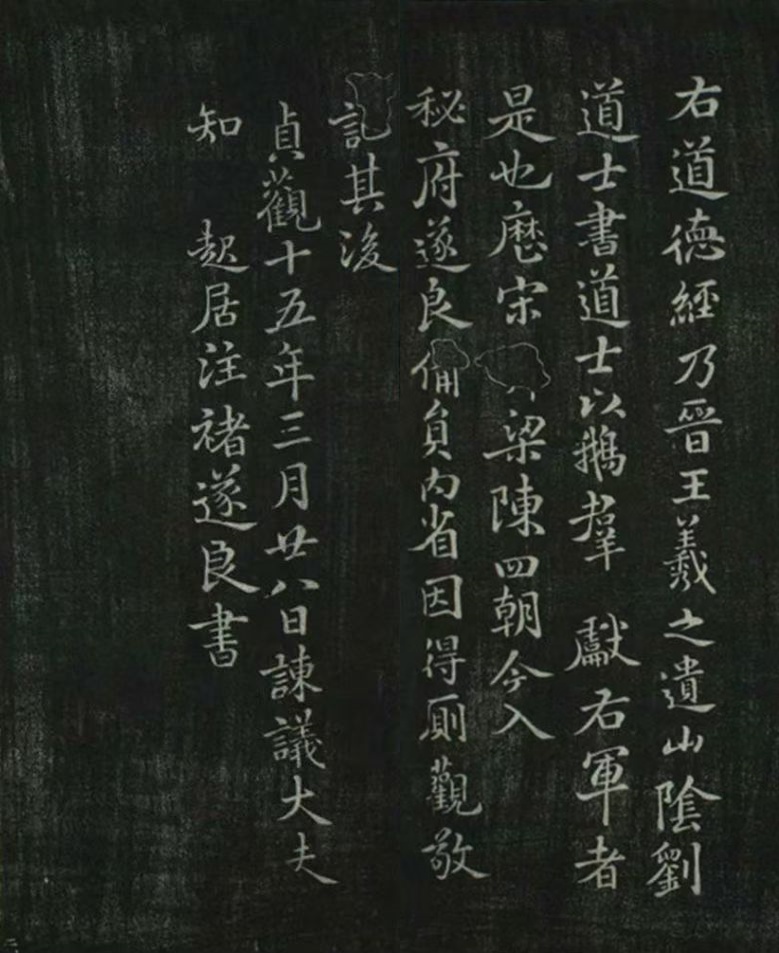 右道德經乃晉王羲之遺山陰劉
道士書道士以鵝群 獻右軍者
是也歷宋 梁陳四朝今入
秘府遂良備員内省因得廁觀敬
記其後
貞觀十五年三月廿八日諫議大夫
知 起居注褚遂良書